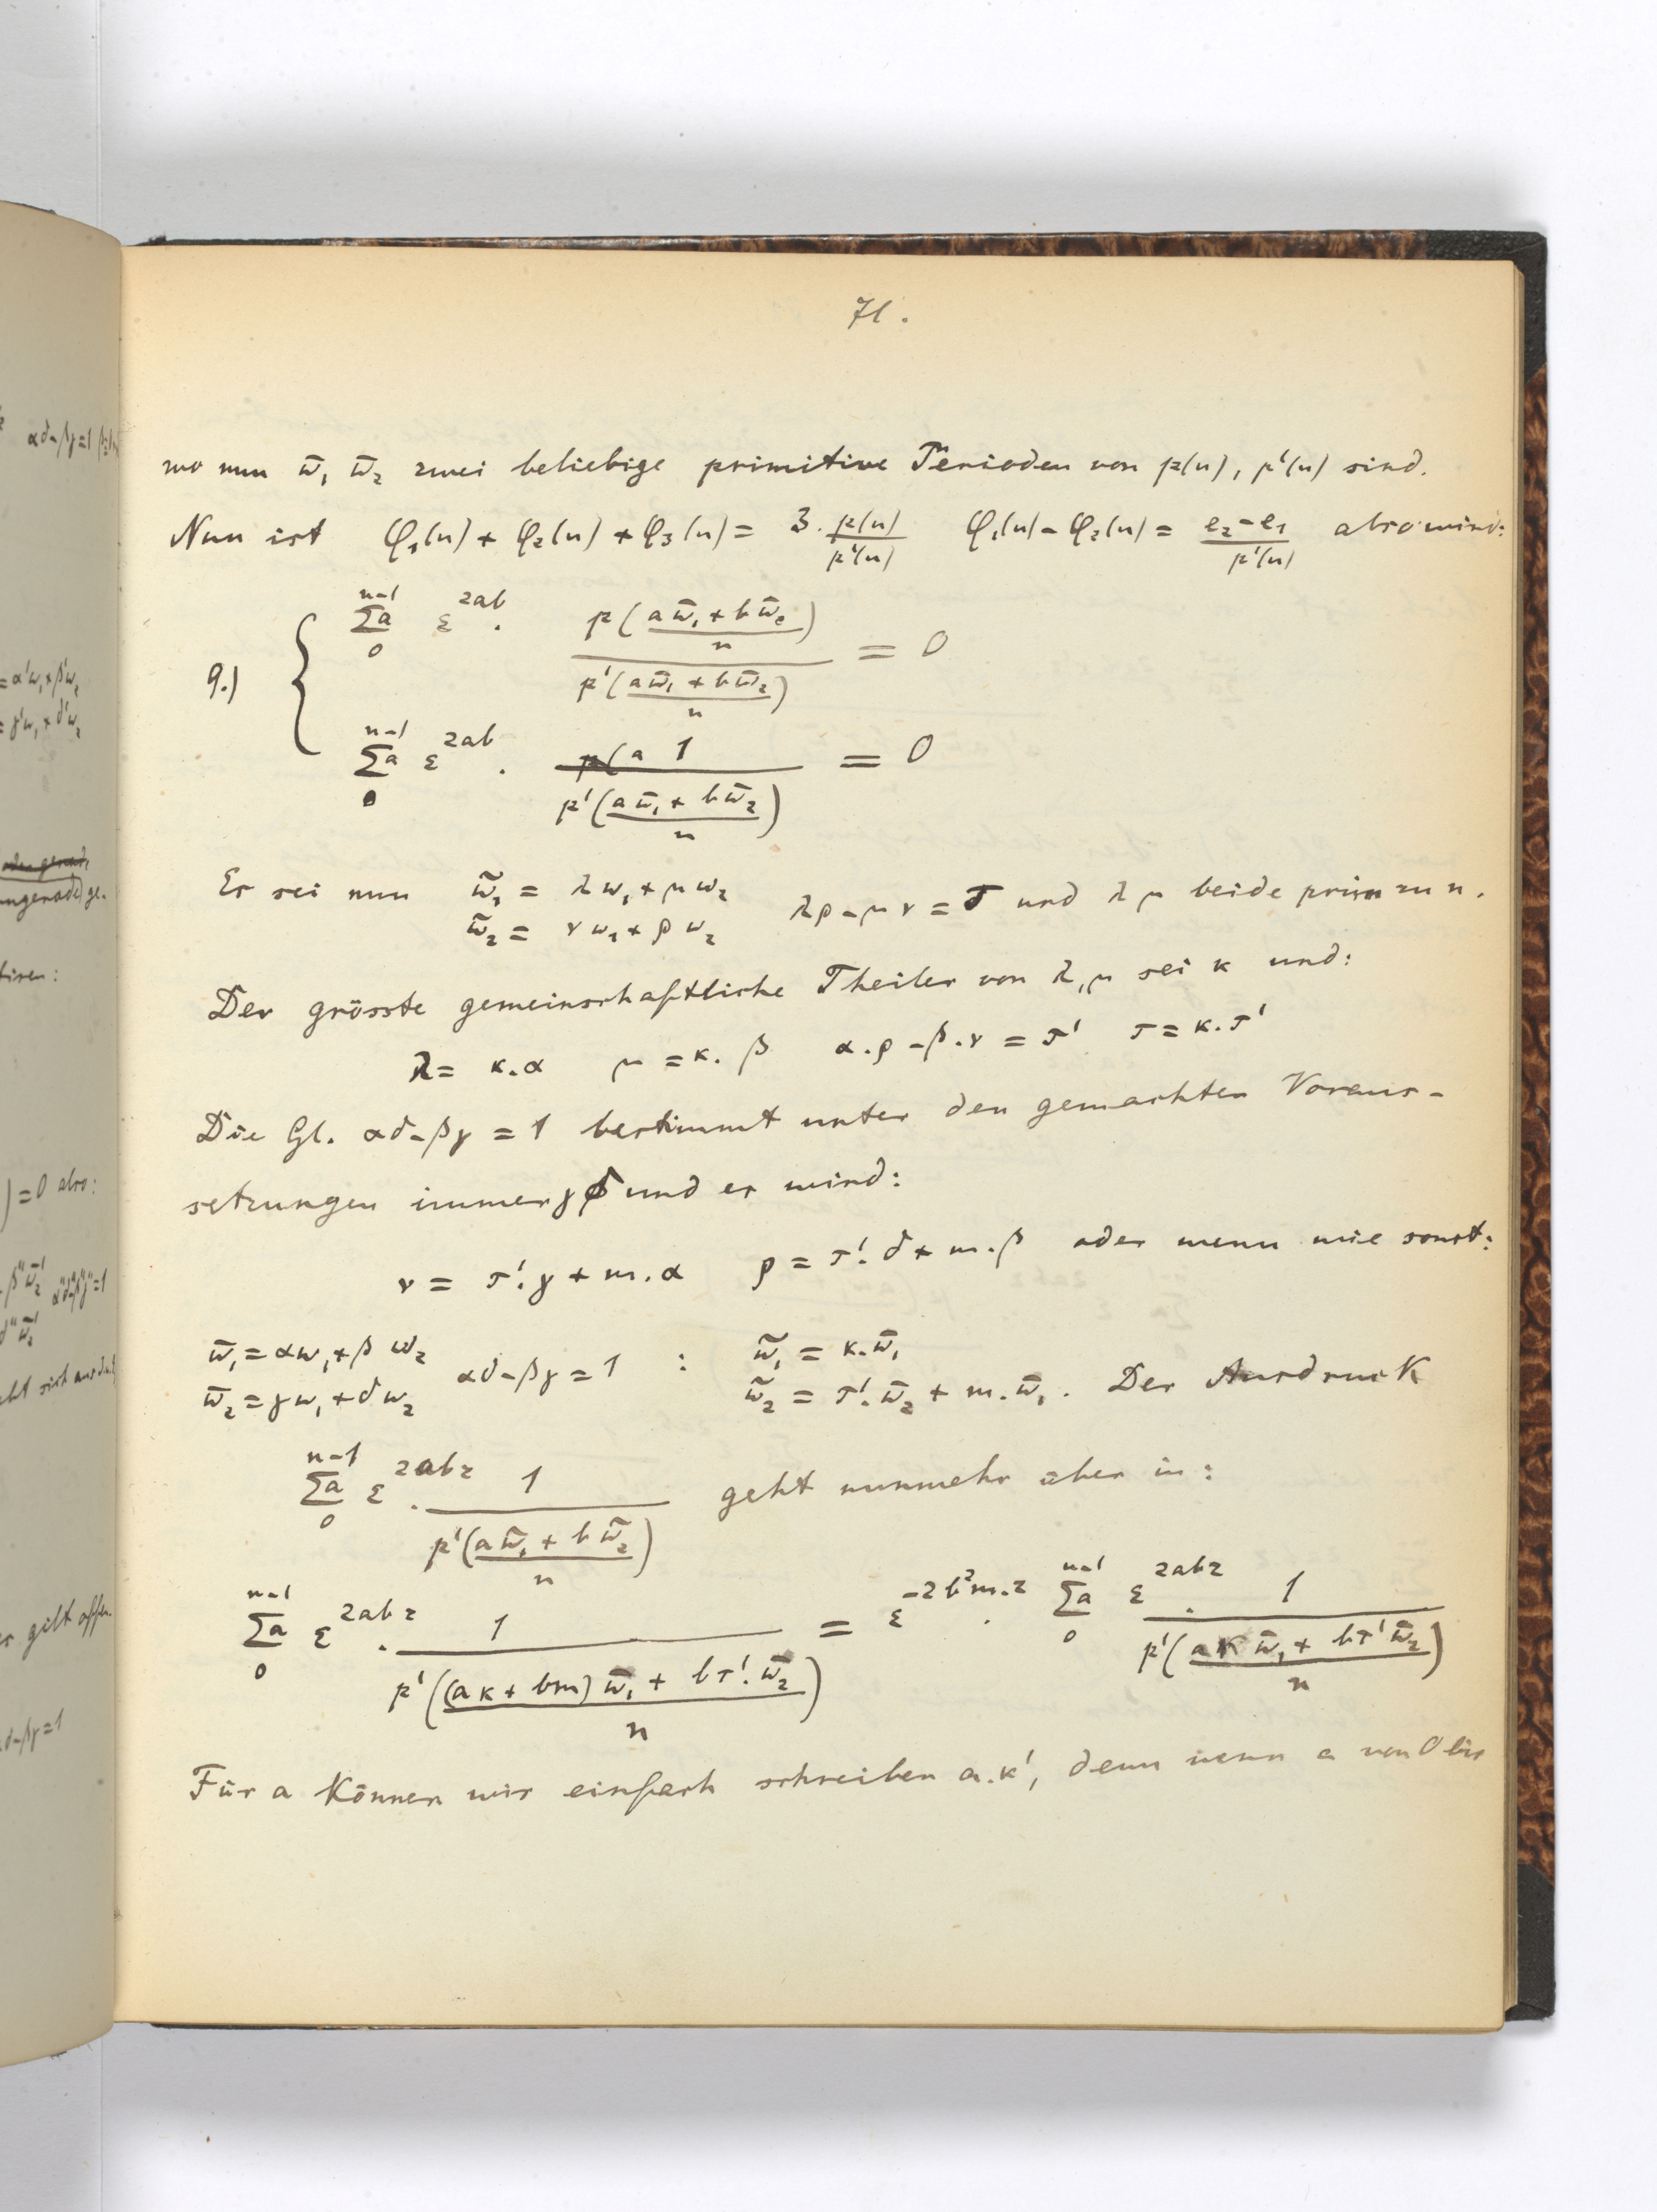 71.
wo nun ω̄₁ ω̄₂ zwei beliebige primitive Perioden von p(u), p'(u) sind.
Nun ist φ₁(u) + φ₂(u) + φ₃(u) = 3. p(u)/p'(u) φ₁(u) - φ₂(u) = (e₂-e₁)/p'(u) also wird:
9.) { Σa₀ⁿ⁻¹ ε^{2ab} . p((aω̄₁ + bω̄₂)/n) / p'((aω̄₁ + bω̄₂)/n) = 0
Σa₀ⁿ⁻¹ ε^{2ab} . 1 / p'((aω̄₁ + bω̄₂)/n) = 0
Es sei nun ω̃₁ = λω₁ + μω₂
ω̃₂ = νω₁ + ρω₂ λρ - μν = τ und λ μ beide prim zu n.
Der grösste gemeinschaftliche Theiler von λ, μ sei κ und:
λ = κ.α μ = κ.β α.ρ - β.ν = τ' τ = κ.τ'
Die Gl. αδ - βγ = 1 bestimmt unter den gemachten Voraus-
setzungen immer γ δ und es wird:
ν = τ'.γ + m.α ρ = τ'.δ + m.β oder wenn wie sonst:
ω̄₁ = αω₁ + βω₂ αδ - βγ = 1 : ω̃₁ = κ.ω̄₁
ω̄₂ = γω₁ + δω₂ ω̃₂ = τ'.ω̄₂ + m.ω̄₁. Der Ausdruck
Σa₀ⁿ⁻¹ ε^{2abz} . 1 / p'((aω̃₁ + bω̃₂)/n) geht nunmehr über in:
Σa₀ⁿ⁻¹ ε^{2abz} . 1 / p'(((aκ + bm)ω̄₁ + bτ'.ω̄₂)/n) = ε^{-2b²m.z} . Σa₀ⁿ⁻¹ ε^{2abz} . 1 / p'((aκω̄₁ + bτ'ω̄₂)/n)
Für a können wir einfach schreiben a.κ', denn wenn a von 0 bis
αδ-βγ=1
=α'ω₁+β'ω₂
=γ'ω₁+δ'ω₂
ungerade) ge-
)=0 also:
es gibt offen-
αδ-βγ=1